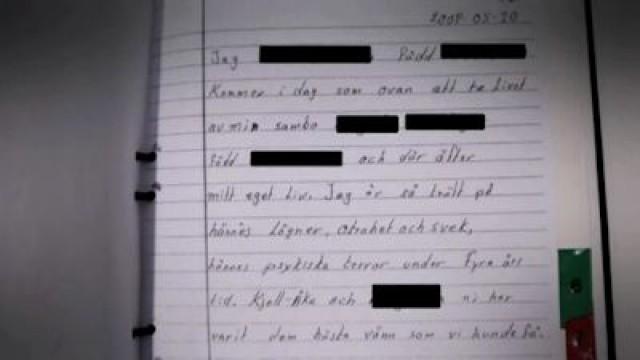 2008-05-20
Jag Född
Kommer i dag som ovan att ta livet
av min sambo
född och där äfter
mitt eget liv. Jag är så trött på
hännes lögner, otrohet och svek,
hännes psykiska terror under fyra års
tid. Kjell-Åke och ni har
varit dom bästa vänn som vi kunde få.